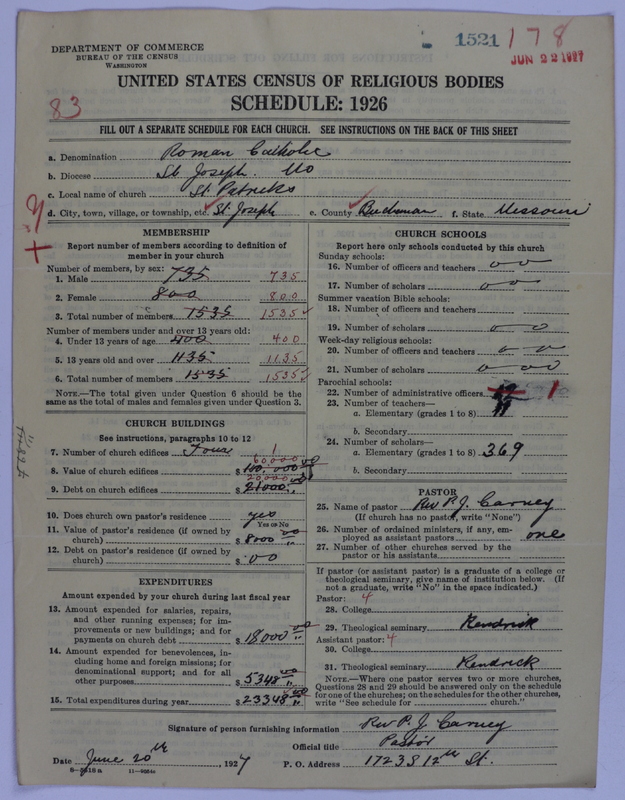 1521 178
JUN 22 1927
DEPARTMENT OF COMMERCE
BUREAU OF THE CENSUS
WASHINGTON
UNITED STATES CENSUS OF RELIGIOUS BODIES
SCHEDULE: 1926
83
FILL OUT A SEPARATE SCHEDULE FOR EACH CHURCH. SEE INSTRUCTIONS ON THE BACK OF THIS SHEET
a. Denomination Roman Catholic
b. Diocese St Joseph. Mo
c. Local name of church St. Patricks
d. City, town, village, or township, etc. St. Joseph e. County Buchanan f. State Missouri
MEMBERSHIP
Report number of members according to definition of
member in your church
Number of members, by sex:
1. Male 735 735
2. Female 800 800
3. Total number of members 1535 1535
Number of members under and over 13 years old:
4. Under 13 years of age 400 400
5. 13 years old and over 1135 1135
6. Total number of members 1535 1535
NOTE.—The total given under Question 6 should be
the same as the total of males and females given under Question 3.
CHURCH BUILDINGS
See instructions, paragraphs 10 to 12
7. Number of church edifices Four 1
60,000
8. Value of church edifices $ 100.000 00
20000
9. Debt on church edifices $ 21000
10. Does church own pastor's residence yes
YES OR NO
11. Value of pastor's residence (if owned by
church) $ 8000 00
12. Debt on pastor's residence (if owned by
church) $ 00
EXPENDITURES
Amount expended by your church during last fiscal year
13. Amount expended for salaries, repairs,
and other running expenses; for im-
provements or new buildings; and for
payments on church debt $ 18000 00
14. Amount expended for benevolences, in-
cluding home and foreign missions; for
denominational support; and for all
other purposes $ 5348 00
15. Total expenditures during year $ 23348 00
CHURCH SCHOOLS
Report here only schools conducted by this church
Sunday schools:
16. Number of officers and teachers o o
17. Number of scholars o o
Summer vacation Bible schools:
18. Number of officers and teachers
19. Number of scholars o o
Week-day religious schools:
20. Number of officers and teachers o o
21. Number of scholars o oo
Parochial schools:
22. Number of administrative officers 1
23. Number of teachers—
a. Elementary (grades 1 to 8) 11
b. Secondary
24. Number of scholars—
a. Elementary (grades 1 to 8) 369
b. Secondary
PASTOR
25. Name of pastor Rev P. J. Carney
(If church has no pastor, write "None")
26. Number of ordained ministers, if any, em-
ployed as assistant pastors one
27. Number of other churches served by the
pastor or his assistants
If pastor (or assistant pastor) is a graduate of a college or
theological seminary, give name of institution below. (If
not a graduate, write "No" in the space indicated.)
Pastor: 4
28. College
29. Theological seminary Kendrick
Assistant pastor: 4
30. College
31. Theological seminary Kendrick
NOTE.—Where one pastor serves two or more churches,
Questions 28 and 29 should be answered only on the schedule
for one of the churches; on the schedules for the other churches,
write "See schedule for church."
Signature of person furnishing information Rev P. J. Carney
Official title Pastor
Date June 20th, 1927 P. O. Address 1723 S 12th St.
11—9664